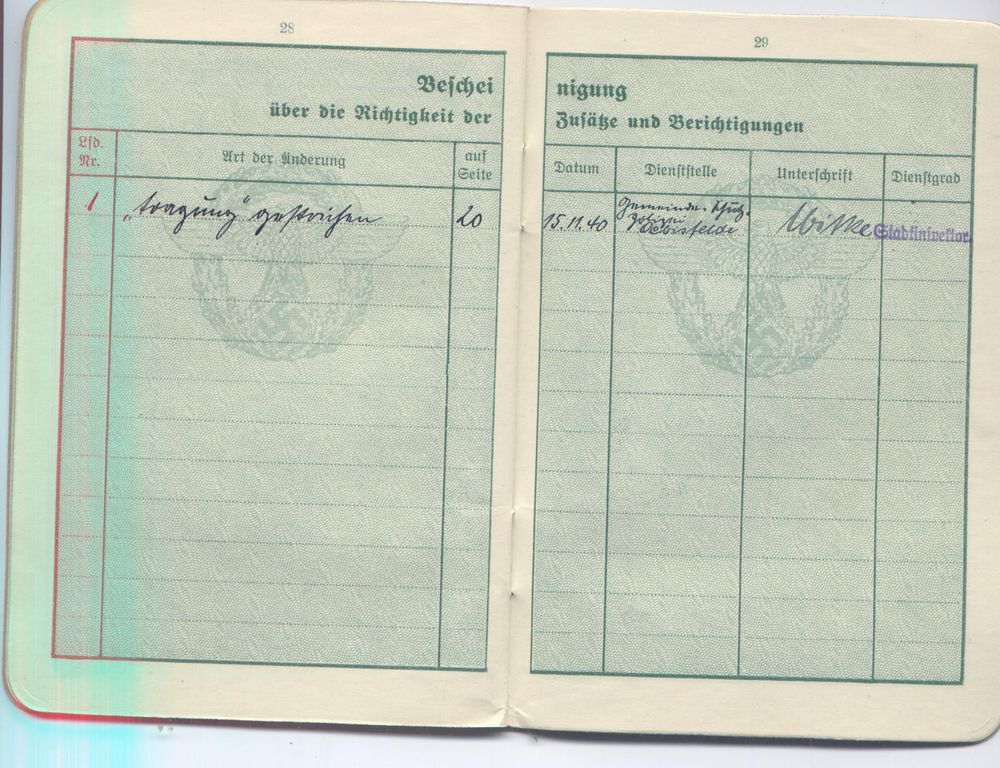 28
Beschei
über die Richtigkeit der
Lfd.
Nr.
Art der Änderung
auf
Seite
1
„tragung" gestrichen
20
29
nigung
Zusätze und Berichtigungen
Datum
Dienststelle
Unterschrift
Dienstgrad
15.11.40
Gemeinde-Schutz-
polizei
Oebisfelde
Stadtinspektor.